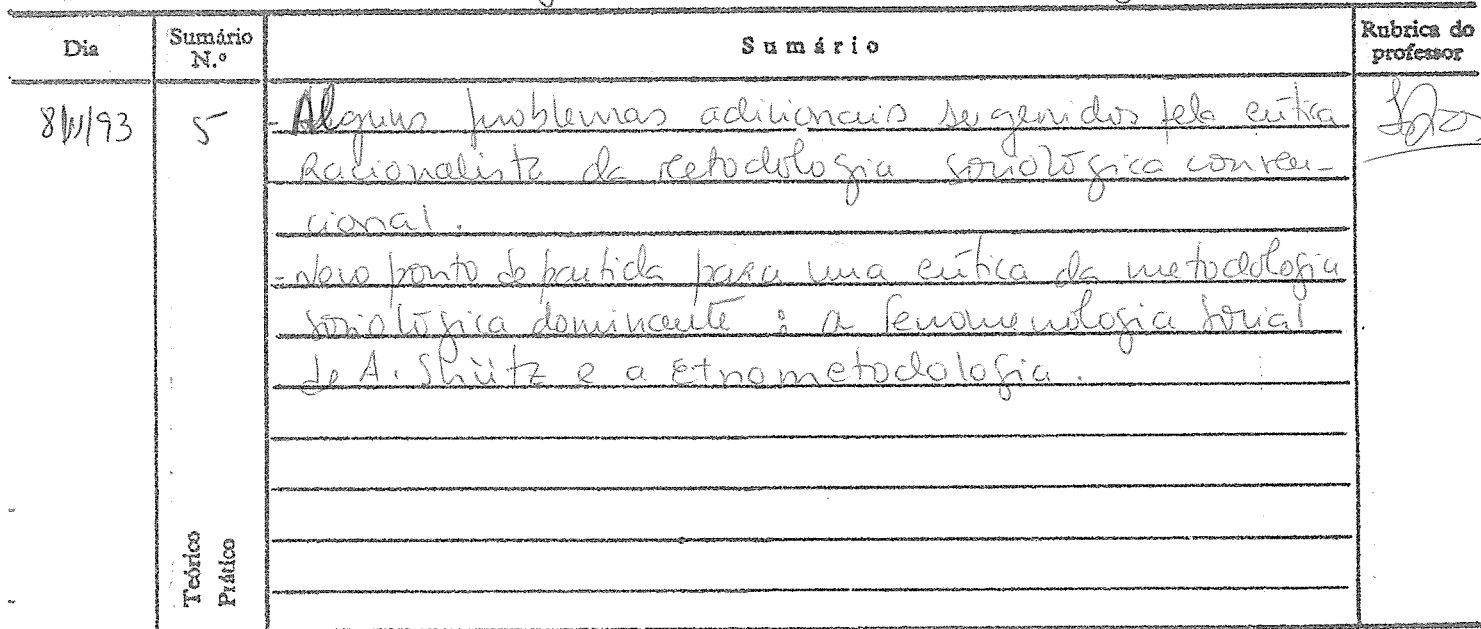 Dia Sumário N.º Sumário Rubrica do professor
8/11/93 5 - Alguns problemas adicionais sugeridos pela crítica
Racionalista da metodologia sociológica conven-
cional.
- Novo ponto de partida para uma crítica da metodologia
sociológica dominante : a fenomenologia social
de A. Shütz e a Etnometodologia.
Teórico
Prático